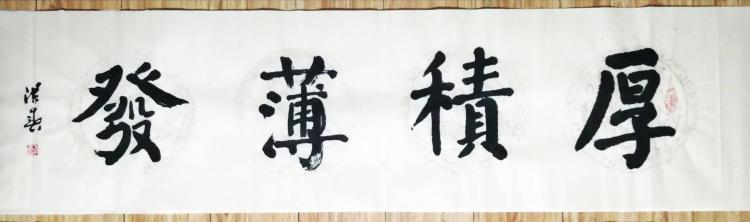 厚積薄發